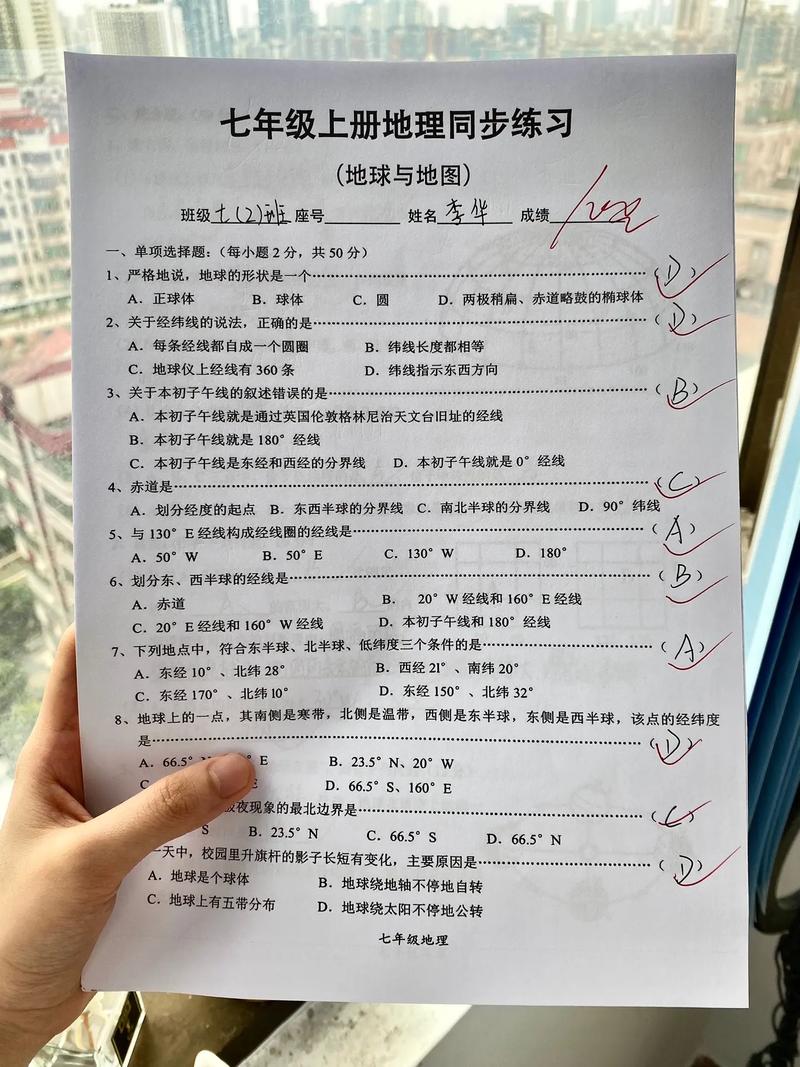 七年级上册地理同步练习
(地球与地图)
班级七(2)班 座号 姓名李华 成绩
一、单项选择题:(每小题2分,共50分)
1、严格地说,地球的形状是一个………(D)
A. 正球体 B. 球体 C. 圆 D. 两极稍扁、赤道略鼓的椭球体
2、关于经纬线的说法,正确的是………(D)
A. 每条经线都自成一个圆圈 B. 纬线长度都相等
C. 地球仪上经线有360条 D. 纬线指示东西方向
3、关于本初子午线的叙述错误的是………(B)
A. 本初子午线就是通过英国伦敦格林尼治天文台旧址的经线
B. 本初子午线就是180°经线
C. 本初子午线是东经和西经的分界线 D. 本初子午线就是0°经线
4、赤道是………(C)
A. 划分经度的起点 B. 东西半球的分界线 C. 南北半球的分界线 D. 90°纬线
5、与130°E经线构成经线圈的经线是………(A)
A. 50°W B. 50°E C. 130°W D. 180°
6、划分东、西半球的经线是………(B)
A. 赤道 B. 20°W经线和160°E经线
C. 20°E经线和160°W经线 D. 本初子午线和180°经线
7、下列地点中,符合东半球、北半球、低纬度三个条件的是………(A)
A. 东经10°、北纬28° B. 西经21°、南纬20°
C. 东经170°、北纬10° D. 东经150°、北纬32°
8、地球上的一点,其南侧是寒带,北侧是温带,西侧是东半球,东侧是西半球,该点的经纬度
是………(D)
A. 66.5° E B. 23.5°N、20°W
C E D. 66.5°S、160°E
极夜现象的最北边界是………(C)
S B. 23.5°N C. 66.5°S D. 66.5°N
一天中,校园里升旗杆的影子长短有变化,主要原因是………(D)
A. 地球是个球体 B. 地球绕地轴不停地自转
C. 地球上有五带分布 D. 地球绕太阳不停地公转
七年级地理